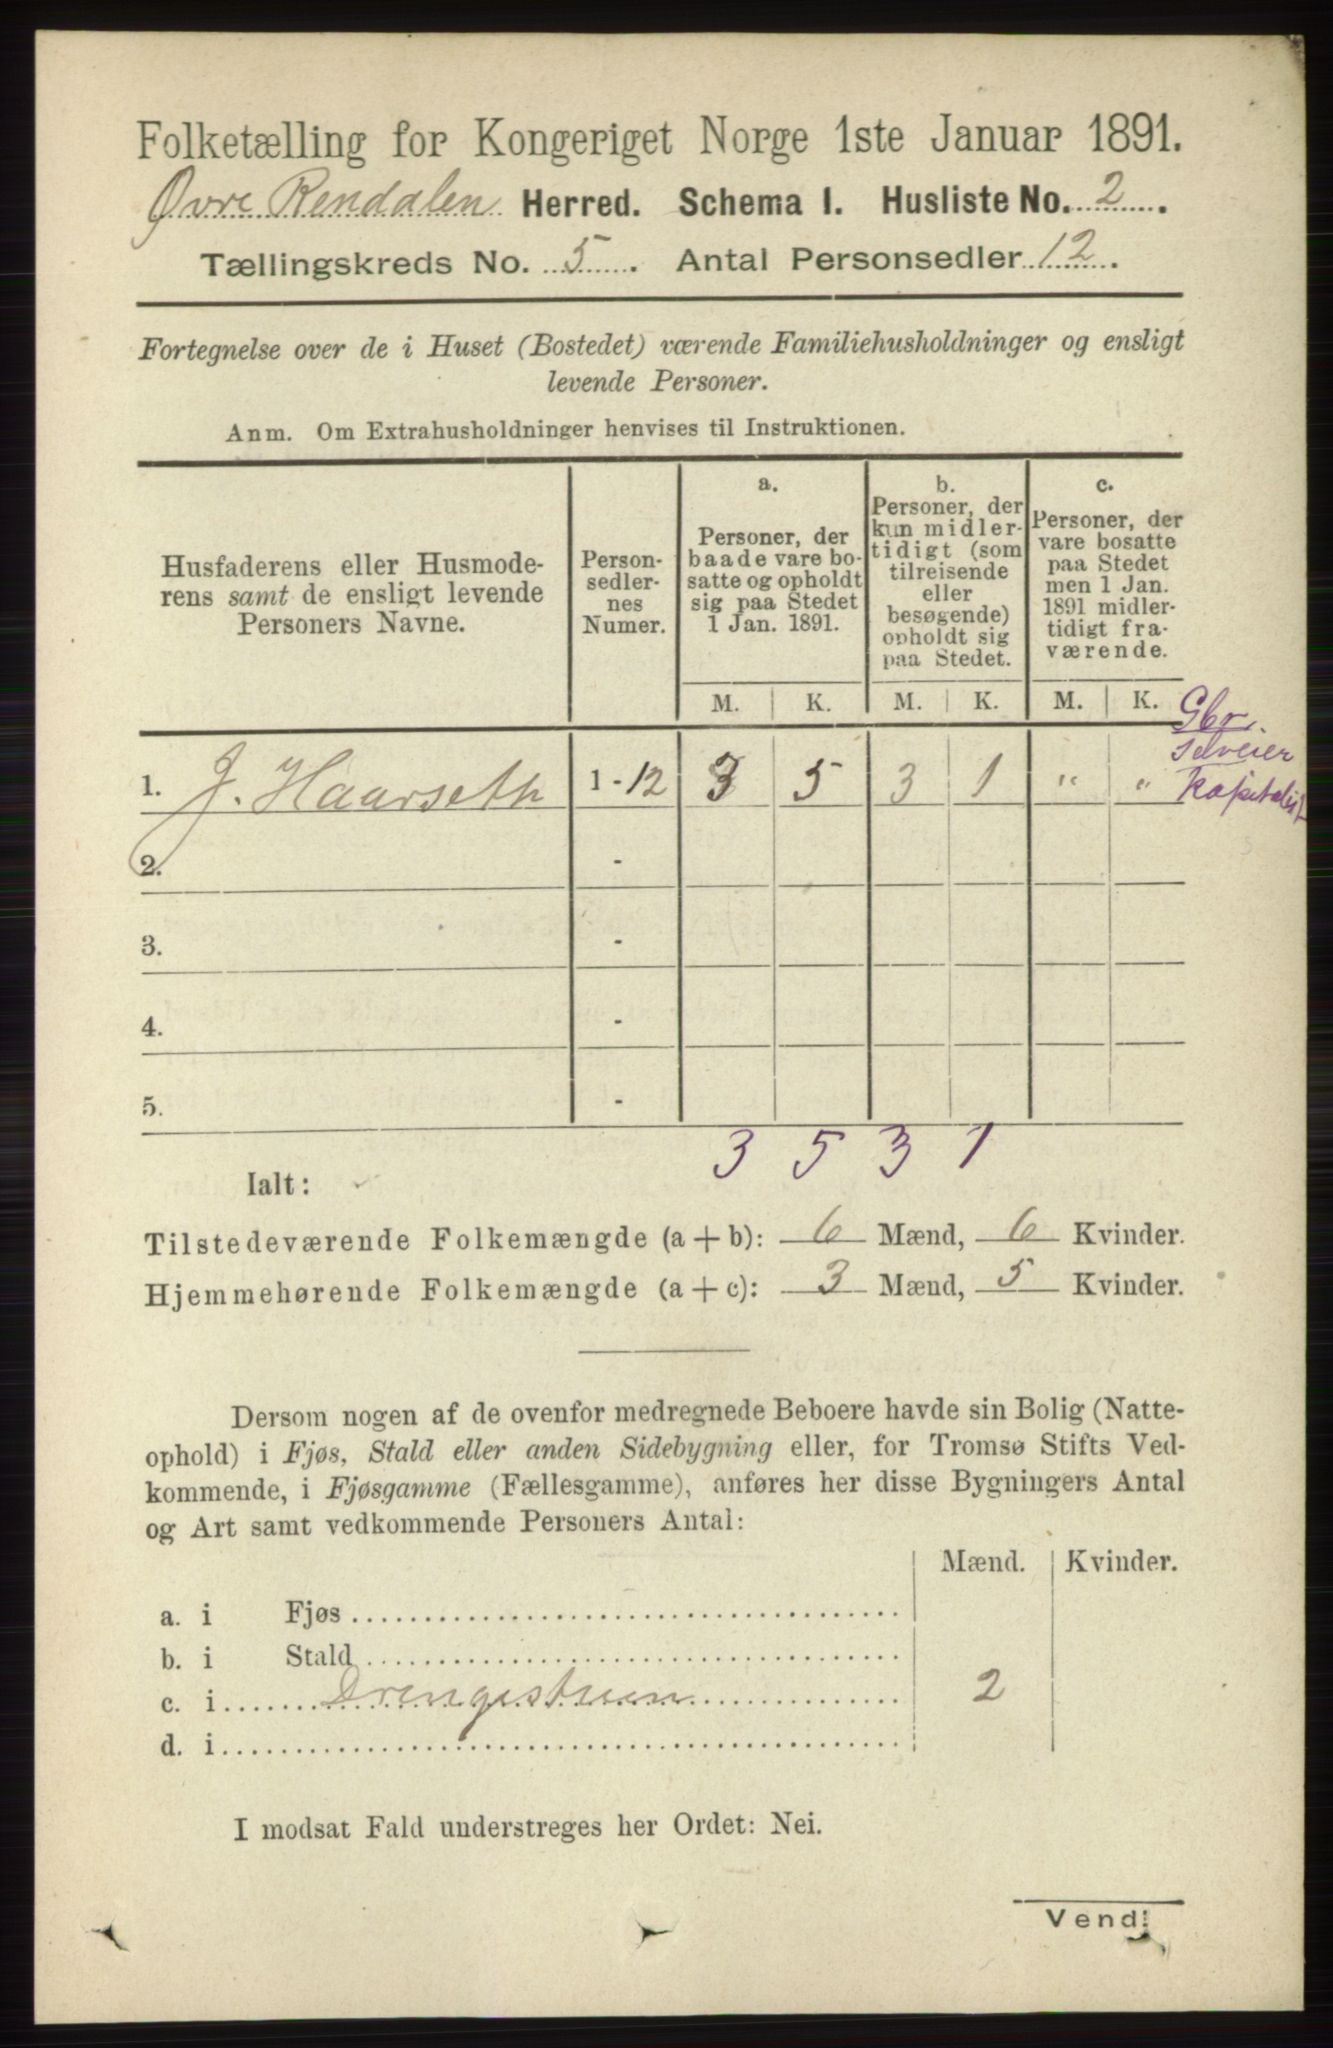 Folketælling for Kongeriget Norge 1ste Januar 1891.
Øvre Rendalen Herred. Schema I. Husliste No. 2.
Tællingskreds No. 5. Antal Personsedler 12.
Fortegnelse over de i Huset (Bostedet) værende Familiehusholdninger og ensligt
levende Personer.
Anm. Om Extrahusholdninger henvises til Instruktionen.
Husfaderens eller Husmode-
rens samt de ensligt levende
Personers Navne.
Person-
sedler-
nes
Numer.
a.
Personer, der
baade vare bo-
satte og opholdt
sig paa Stedet
1 Jan. 1891.
b.
Personer, der
kun midler-
tidigt (som
tilreisende
eller
besøgende)
opholdt sig
paa Stedet.
c.
Personer, der
vare bosatte
paa Stedet
men 1 Jan.
1891 midler-
tidigt fra-
værende.
M. K. M. K. M. K.
Gbr.
Selveier
Kapitalist
1. J. Haarseth 1-12 3 5 3 1 " "
2. -
3. -
4. -
5. -
3 5 3 1
Ialt:
Tilstedeværende Folkemængde (a + b): 6 Mænd, 6 Kvinder.
Hjemmehørende Folkemængde (a + c): 3 Mænd, 5 Kvinder.
Dersom nogen af de ovenfor medregnede Beboere havde sin Bolig (Natte-
ophold) i Fjøs, Stald eller anden Sidebygning eller, for Tromsø Stifts Ved-
kommende, i Fjøsgamme (Fællesgamme), anføres her disse Bygningers Antal
og Art samt vedkommende Personers Antal:
Mænd. Kvinder.
a. i Fjøs
b. i Stald
c. i Drengestuen 2
d. i
I modsat Fald understreges her Ordet: Nei.
Vend!